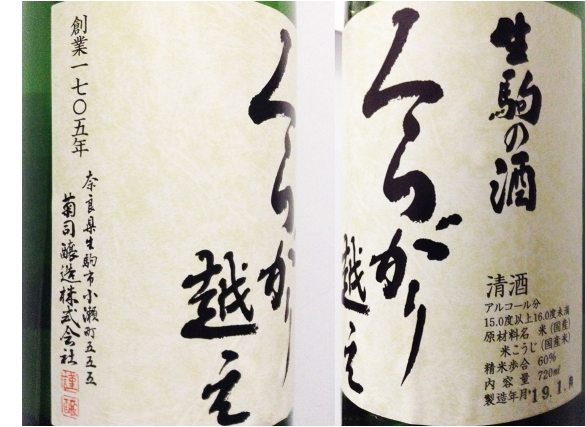 創業一七〇五年
奈良県生駒市小瀬町五五五
菊司醸造株式会社
謹醸
くらがり
越え
生駒の酒
くらがり
越え
清酒
アルコール分
15.0度以上16.0度未満
原材料名 米(国産)
米こうじ(国産米)
精米歩合 60%
内容量 720ml
製造年月 19.1.